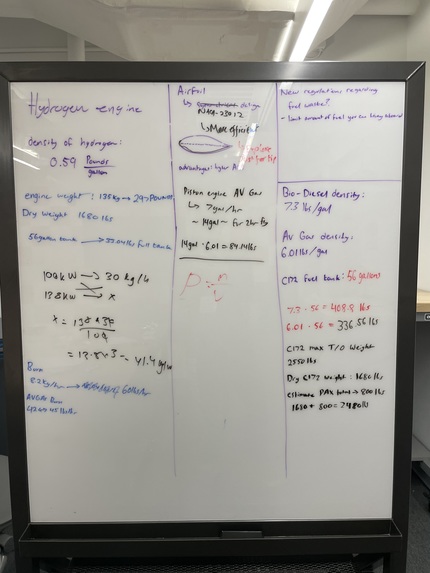 Hydrogen engine
density of hydrogen:
0.59 Pounds
gallon
engine weight : 135kg → 297 Pounds
Dry weight 1680 lbs
56 gallon tank → 33.04 lbs full tank
100kW → 30 kg/h
138kW → x
x = 138 * 30
100
= 13.8 * 3 = 41.4 kg/h
Burn
AVGAS Burn
Airfoil
NACA-23012
↳ More efficient
advantages: higher
Piston engine AV Gas
↳ 7gal/hr
~ 14gal ~ for 2hr
14gal · 6.01 = 84.14 lbs
P = m
New regulations regarding
fuel waste?
- limit amount of fuel you can
Bio-Diesel density:
7.3 lbs/gal
Av Gas density:
6.01 lbs/gal
C172 Fuel tank: 56 gallons
7.3 · 56 = 408.8 lbs
6.01 · 56 = 336.56 lbs
C172 max T/O weight
2550 lbs
Dry C172 weight : 1680 lbs
Climate PAX total → 800 lbs
1680 + 800 = 2480 lbs